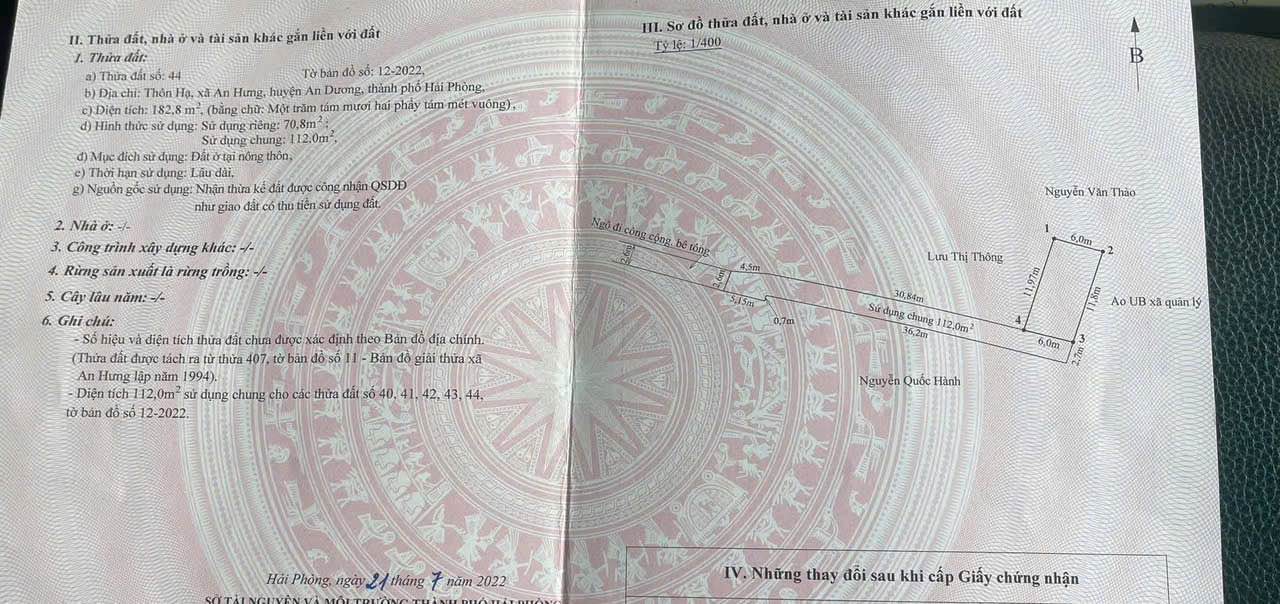 II. Thửa đất, nhà ở và tài sản khác gắn liền với đất
1. Thửa đất:
a) Thửa đất số: 44 Tờ bản đồ số: 12-2022,
b) Địa chỉ: Thôn Hạ, xã An Hưng, huyện An Dương, thành phố Hải Phòng,
c) Diện tích: 182,8 m², (bằng chữ: Một trăm tám mươi hai phẩy tám mét vuông),
d) Hình thức sử dụng: Sử dụng riêng: 70,8m²;
Sử dụng chung: 112,0m²,
đ) Mục đích sử dụng: Đất ở tại nông thôn,
e) Thời hạn sử dụng: Lâu dài,
g) Nguồn gốc sử dụng: Nhận thừa kế đất được công nhận QSDĐ
như giao đất có thu tiền sử dụng đất.
2. Nhà ở: -/-
3. Công trình xây dựng khác: -/-
4. Rừng sản xuất là rừng trồng: -/-
5. Cây lâu năm: -/-
6. Ghi chú:
- Số hiệu và diện tích thửa đất chưa được xác định theo Bản đồ địa chính.
(Thửa đất được tách ra từ thửa 407, tờ bản đồ số 11 - Bản đồ giải thửa xã
An Hưng lập năm 1994).
- Diện tích 112,0m² sử dụng chung cho các thửa đất số 40, 41, 42, 43, 44,
tờ bản đồ số 12-2022.
Hải Phòng, ngày 21 tháng 7 năm 2022
SỞ TÀI NGUYÊN VÀ MÔI TRƯỜNG THÀNH PHỐ HẢI PHÒNG
III. Sơ đồ thửa đất, nhà ở và tài sản khác gắn liền với đất
Tỷ lệ: 1/400
B
Nguyễn Văn Thảo
Ngõ đi công cộng, bê tông
1
6,0m
2
2,6m
4,5m
Lưu Thị Thông
11,97m
11,8m
Ao UB xã quản lý
2,6m
5,15m
30,84m
Sử dụng chung 112,0m²
0,7m
36,2m
4
6,0m
3
2,7m
Nguyễn Quốc Hành
IV. Những thay đổi sau khi cấp Giấy chứng nhận